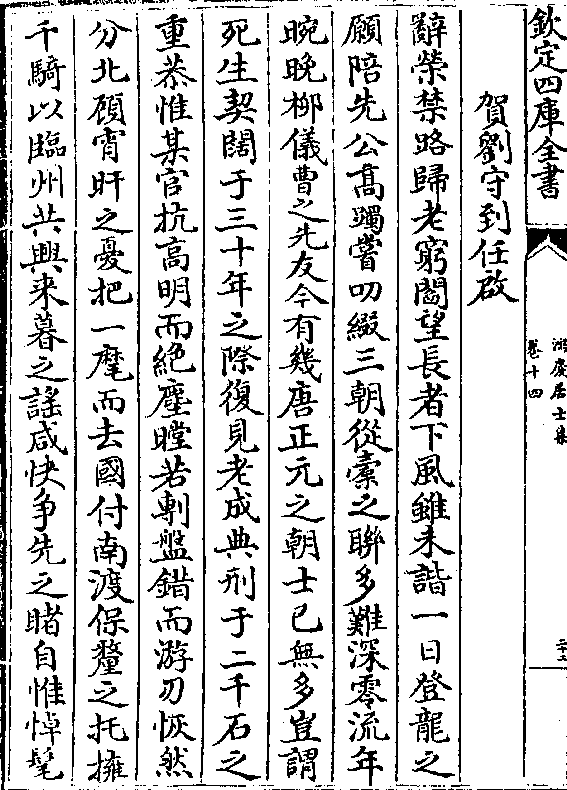 欽定四庫全書
鴻慶居士集
卷十四
賀劉守到任啟
辭榮禁路歸老窮閻望長者下風雖未諧一日登龍之
願陪先公髙躅嘗叨綴三朝從橐之聯多難深零流年
晼晩柳儀曹之先友今有幾唐正元之朝士已無多豈謂
死生契闊于三十年之際復見老成典刑于二千石之
重恭惟某官抗高明而絶塵瞠若剸盤錯而游刃恢然
分北顧宵旰之憂把一麾而去國付南渡保釐之托擁
千騎以臨州共興来暮之謡咸快争先之睹自惟悼髦